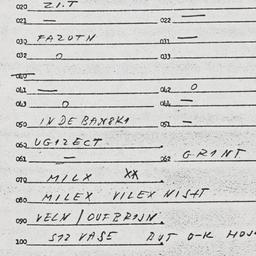 020 ZI.T
021 — 022 —
030 FAZOTN 031 —
032 0 033
040
041 — 042 0
043 0 044 —
050 INDEBANSKI 051 —
060 UGIZECT
061 = 062 GRINT
070 MILX XX
080 MILEX VILEX NISHT
090 VELN/OUFBRIJN
100 S12 VASE AUT O-K